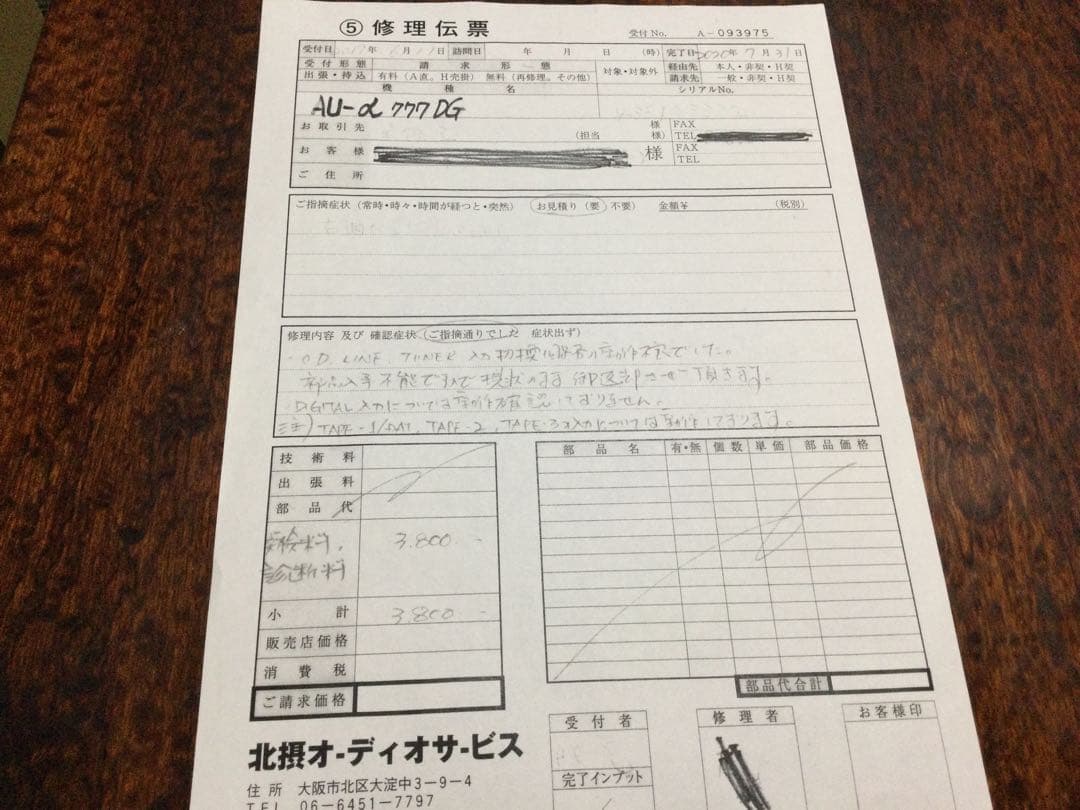 ⑤ 修理伝票
受付No. A-093975
受付日 年 月 日 訪問日 年 月 日 (時) 完了日 年 7月31日
受付形態 請求形態 対象・対象外 経由先 本人・非契・H契
出張・持込 有料(A直。H売掛) 無料(再修理。その他) 請求先 一般・非契・H契
機種名 シリアルNo.
AU-α 777DG
お取引先 (担当 様 様) FAX TEL
お客様 様 FAX TEL
ご住所
ご指摘症状(常時・時々・時間が経つと・突然) お見積り(要)不要) 金額¥ (税別)
修理内容 及び 確認症状(ご指摘通りでした 症状出ず)
LINE, TUNER 入力切換 でした。
部品入手不能ですので現状のまま御返却させて頂きます。
DIGITAL入力については動作確認しておりません。
注) TAPE-1/DAT, TAPE-2, TAPE-3の入力については動作しております。
技術料
出張料
部品代
点検料, 3.800-
診断料
小計 3.800-
販売店価格
消費税
ご請求価格
部品名 有・無 個数 単価 部品価格
部品代合計
受付者 修理者 お客様印
完了インプット
北摂オ-ディオサ-ビス
住所 大阪市北区大淀中3-9-4
TEL 06-6451-7797